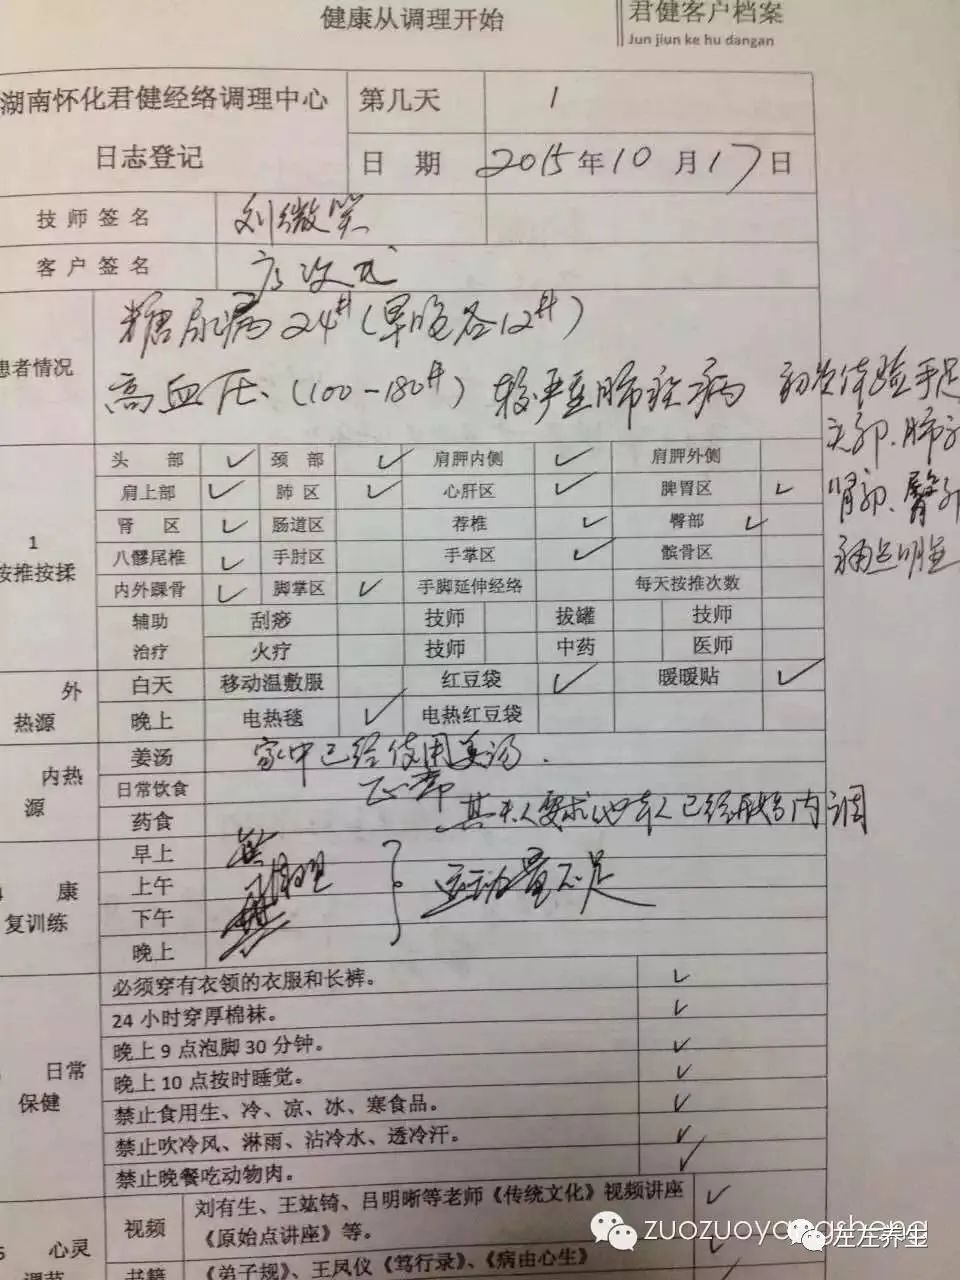 健康从调理开始
君健客户档案
Jun jiun ke hu dangan
湖南怀化君健经络调理中心
日志登记
第几天 1
日 期 2015年10月17日
技师签名 刘微笑
客户签名
患者情况
糖尿病24#(早晚各12#)
高血压(100-180#) 较严重肺 病 初次体验手足
头部、肺
肾部、臀部
痛点明显
1
按推按揉
头 部 ✓ 颈 部 ✓ 肩胛内侧 ✓ 肩胛外侧
肩上部 ✓ 肺 区 ✓ 心肝区 ✓ 脾胃区 ✓
肾 区 ✓ 肠道区 荐椎 ✓ 臀部 ✓
八髎尾椎 ✓ 手肘区 手掌区 ✓ 髌骨区
内外踝骨 ✓ 脚掌区 ✓ 手脚延伸经络 每天按推次数
辅助 刮痧 技师 拔罐 技师
治疗 火疗 技师 中药 医师
外
热源
白天 移动温敷服 红豆袋 ✓ 暖暖贴 ✓
晚上 电热毯 ✓ 电热红豆袋
内热
源
姜汤 家中已经使用姜汤.
日常饮食 正常
药食 其夫人要求他本人已经开始内调
康
复训练
早上
上午
下午
晚上
运动量不足
日常
保健
必须穿有衣领的衣服和长裤。 ✓
24 小时穿厚棉袜。 ✓
晚上 9 点泡脚 30 分钟。 ✓
晚上 10 点按时睡觉。 ✓
禁止食用生、冷、凉、冰、寒食品。 ✓
禁止吹冷风、淋雨、沾冷水、透冷汗。 ✓
禁止晚餐吃动物肉。 ✓
5 心灵
调节
视频 刘有生、王竑锜、吕明晰等老师《传统文化》视频讲座 ✓
《原始点讲座》等。
书籍 《弟子规》、王凤仪《笃行录》、《病由心生》
zuozuoyangsheng
左左养生